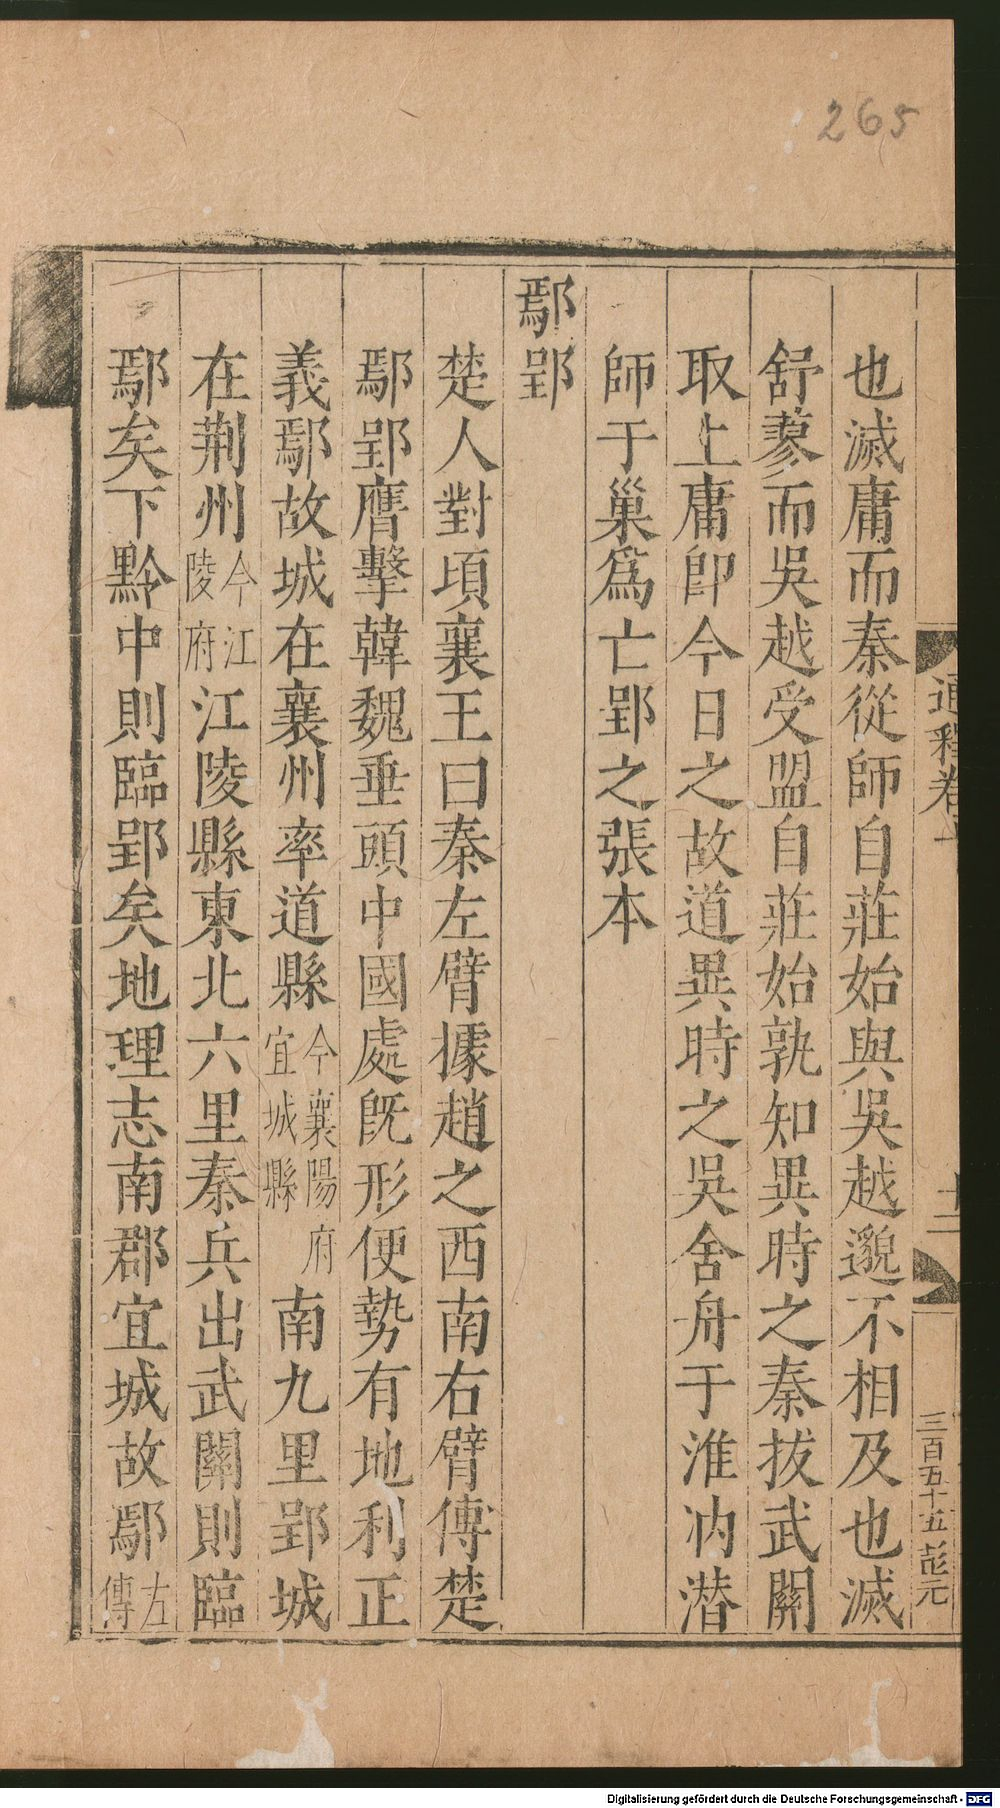 265
通釋卷十
十二
三百五十五 彭元
也滅庸而秦從師自莊始與吳越邈不相及也滅
舒蓼而吳越受盟自莊始孰知異時之秦拔武關
取上庸卽今日之故道異時之吳舍舟于淮汭潛
師于巢爲亡郢之張本
鄢郢
楚人對頃襄王曰秦左臂據趙之西南右臂傅楚
鄢郢膺擊韓魏垂頭中國處旣形便勢有地利正
義鄢故城在襄州率道縣今襄陽府宜城縣南九里郢城
在荆州今江陵府江陵縣東北六里秦兵出武關則臨
鄢矣下黔中則臨郢矣地理志南郡宜城故鄢左傳
Digitalisierung gefördert durch die Deutsche Forschungsgemeinschaft - DFG